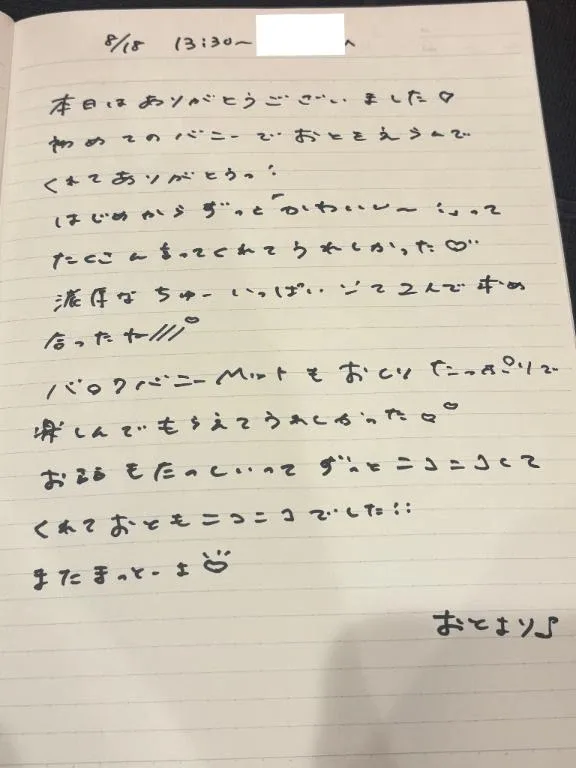 8/18 13:30〜
本日はありがとうございました♡
初めてのバニーでおとをえらんで
くれてありがとうっ!
はじめからずっと「かわいい〜!」って
たくさん言ってくれてうれしかった♡
濃厚なちゅーいっぱいして2人で求め
合ったね///♡
バロクバニーMットもおとり たっぷりで
楽しんでもらえてうれしかった♡♡
おふろもたのしいってずっとニコニコして
くれておともニコニコでした!!
またまってーよ♡
おとより♪